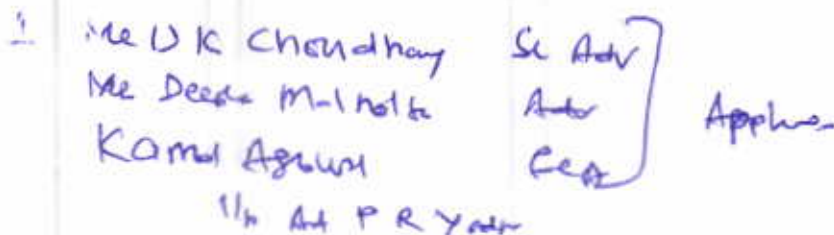 1 Mr U K Choudhary Sr Adv
Mr Deepak Malhotra Adv
Kamal Agarwal FCA
Adv P R Yadav